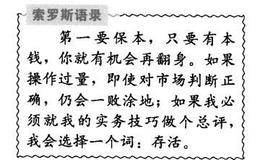 索罗斯语录
第一要保本，只要有本
钱，你就有机会再翻身。如果
操作过量，即使对市场判断正
确，仍会一败涂地；如果我必
须就我的实务技巧做个总评，
我会选择一个词：存活。